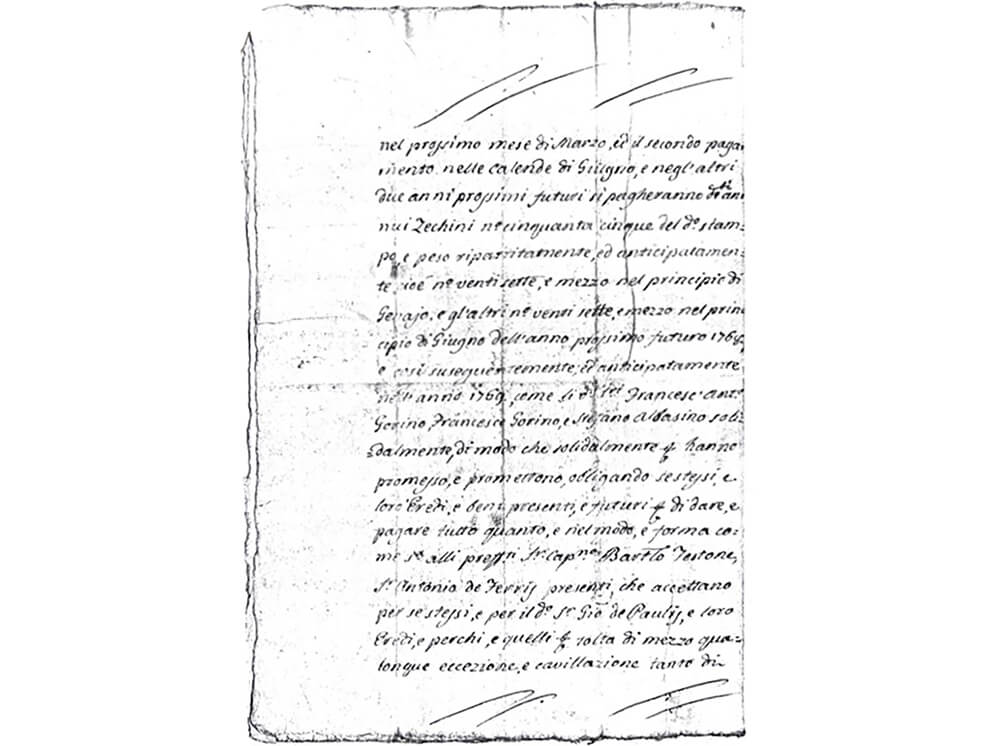 nel prossimo mese di Marzo, ed il secondo paga
mento nelle calende di Giugno, e negl'altri
due anni prossimi futuri si pagheranno
nui Zechini nº cinquanta cinque del dº stam:
po, e peso ripartitamente, ed anticipatamen:
te cioè nº venti sette, e mezzo nel principio di
Genajo, e gl'altri nº venti sette, e mezzo nel prin
cipio di Giugno dell'anno prossimo futuro 1768,
e così suseguentemente, ed anticipatamente
nell'anno 1769, come si Francesc'Antº
Gorino, Francesco Gorino, e Stefano Albasino soli:
dalmente, di modo che solidalmente hanno
promesso, e promettono, obligando se stessi, e
loro Eredi, e beni presenti, e futuri di dare, e
pagare tutto quanto, e nel modo, e forma co:
me sª alli Sr Capnº Bartlo Testone,
Sr Antonio de Ferrij presenti, che accettano
per se stessi, e per il dº Sr Gio de Paulij, e loro
Eredi, e perchi, e quelli tolta di mezzo qua:
lonque eccezione, e cavillazione tanto di